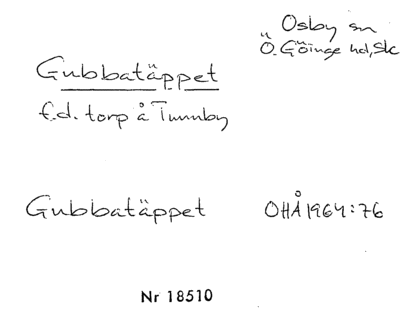 Osby sn
Ö. Göinge hd, Sk
Gubbatäppet
f.d. torp å Tunnby
Gubbatäppet OHÅ 1964:76
Nr 18510